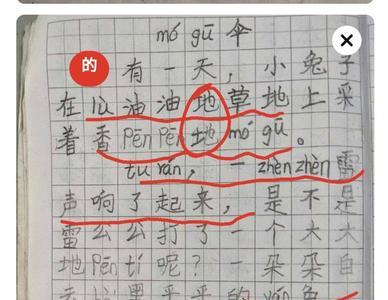 mó gū 伞
的
有一天，小兔子
在 lǜ 油油地草地上采
着香 Pēn Pēn 地 mó gū。
tū rán，一 zhèn zhèn 雷
声响了起来，是不是
雷公公打了一个大大
地 Pēn tì 呢？一朵朵自
黑乎乎的